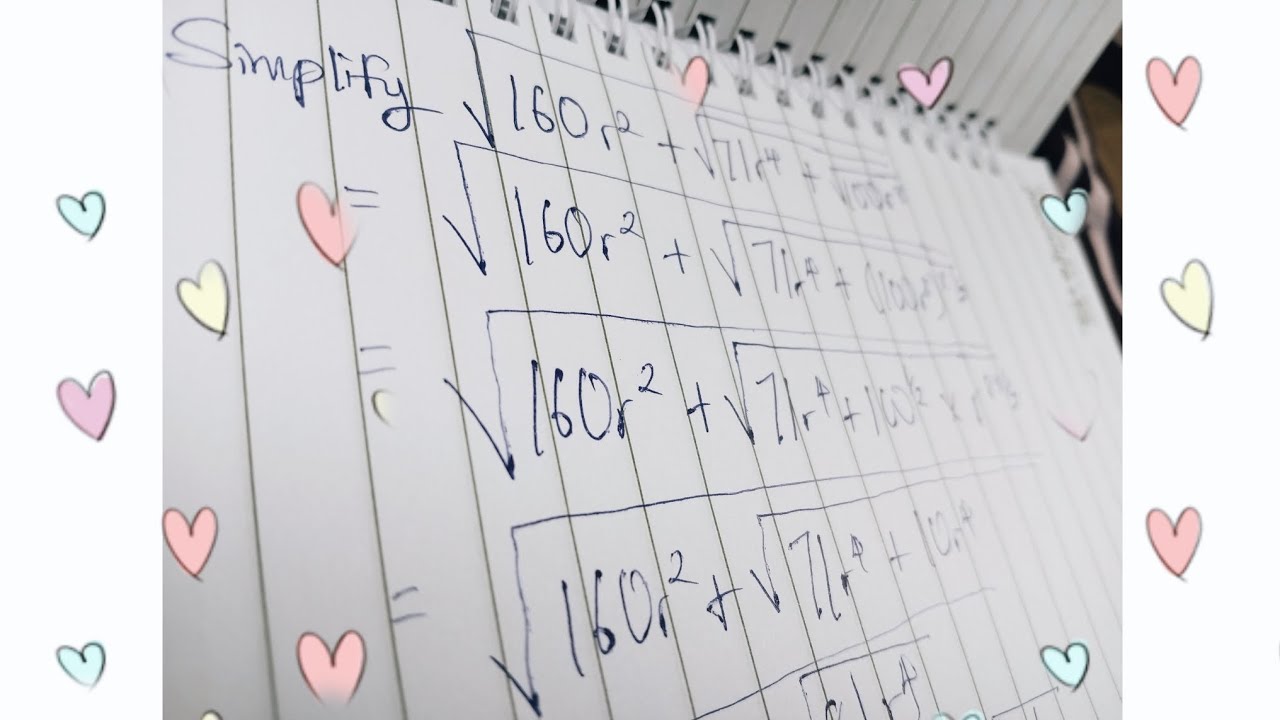 Simplify √(160r² + √(71r⁴ + √(100r⁸)))
= √(160r² + √(71r⁴ + (100r⁸)^(1/2)))
= √(160r² + √(71r⁴ + 100^(1/2) × r^(8×1/2)))
= √(160r² + √(71r⁴ + 10r⁴))
√(81r⁴)